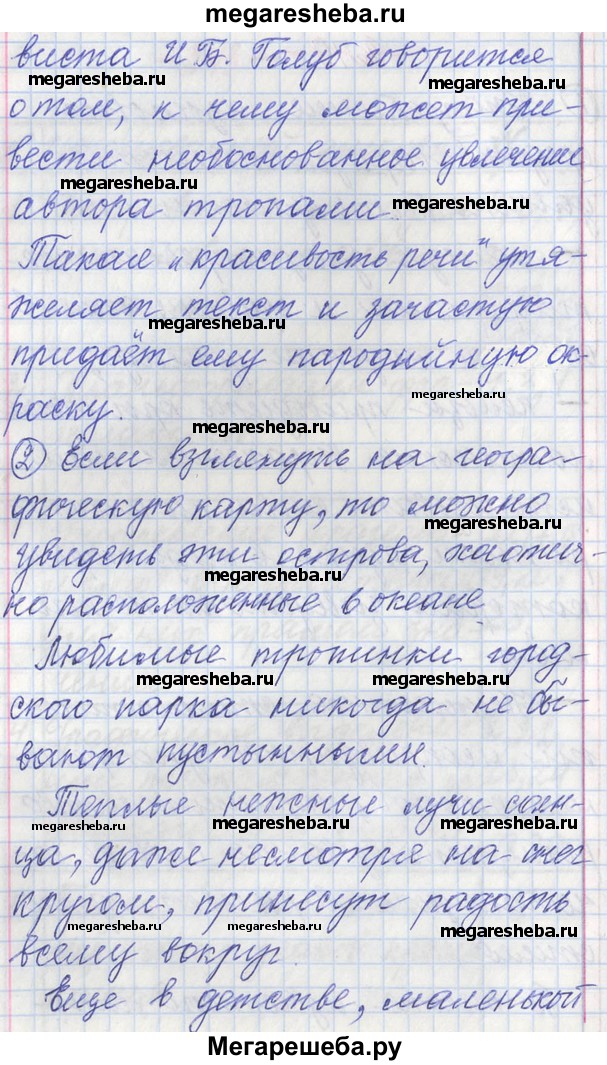 megaresheba.ru
виста И Б. Голуб говорится
megaresheba.ru megaresheba.ru
о том, к чему может при-
вести необоснованное увлечение
megaresheba.ru
автора тропами. megaresheba.ru
Такая „красивость речи" утя-
желяет текст и зачастую
megaresheba.ru
придаёт ему пародийную ок-
megaresheba.ru
раску. megaresheba.ru
② Если взглянуть на геогра-
фическую карту, то можно
megaresheba.ru
увидеть эти острова, хаотич-
megaresheba.ru
но расположенные в океане.
Любимые тропинки город-
megaresheba.ru megaresheba.ru
ского парка никогда не бы-
вают пустынными.
Теплые нежные лучи солн-
megaresheba.ru megaresheba.ru megaresheba.ru
ца, даже несмотря на снег
кругом, принесут радость
megaresheba.ru megaresheba.ru megaresheba.ru
всему вокруг.
Еще в детстве, маленькой
Мегарешеба.ру